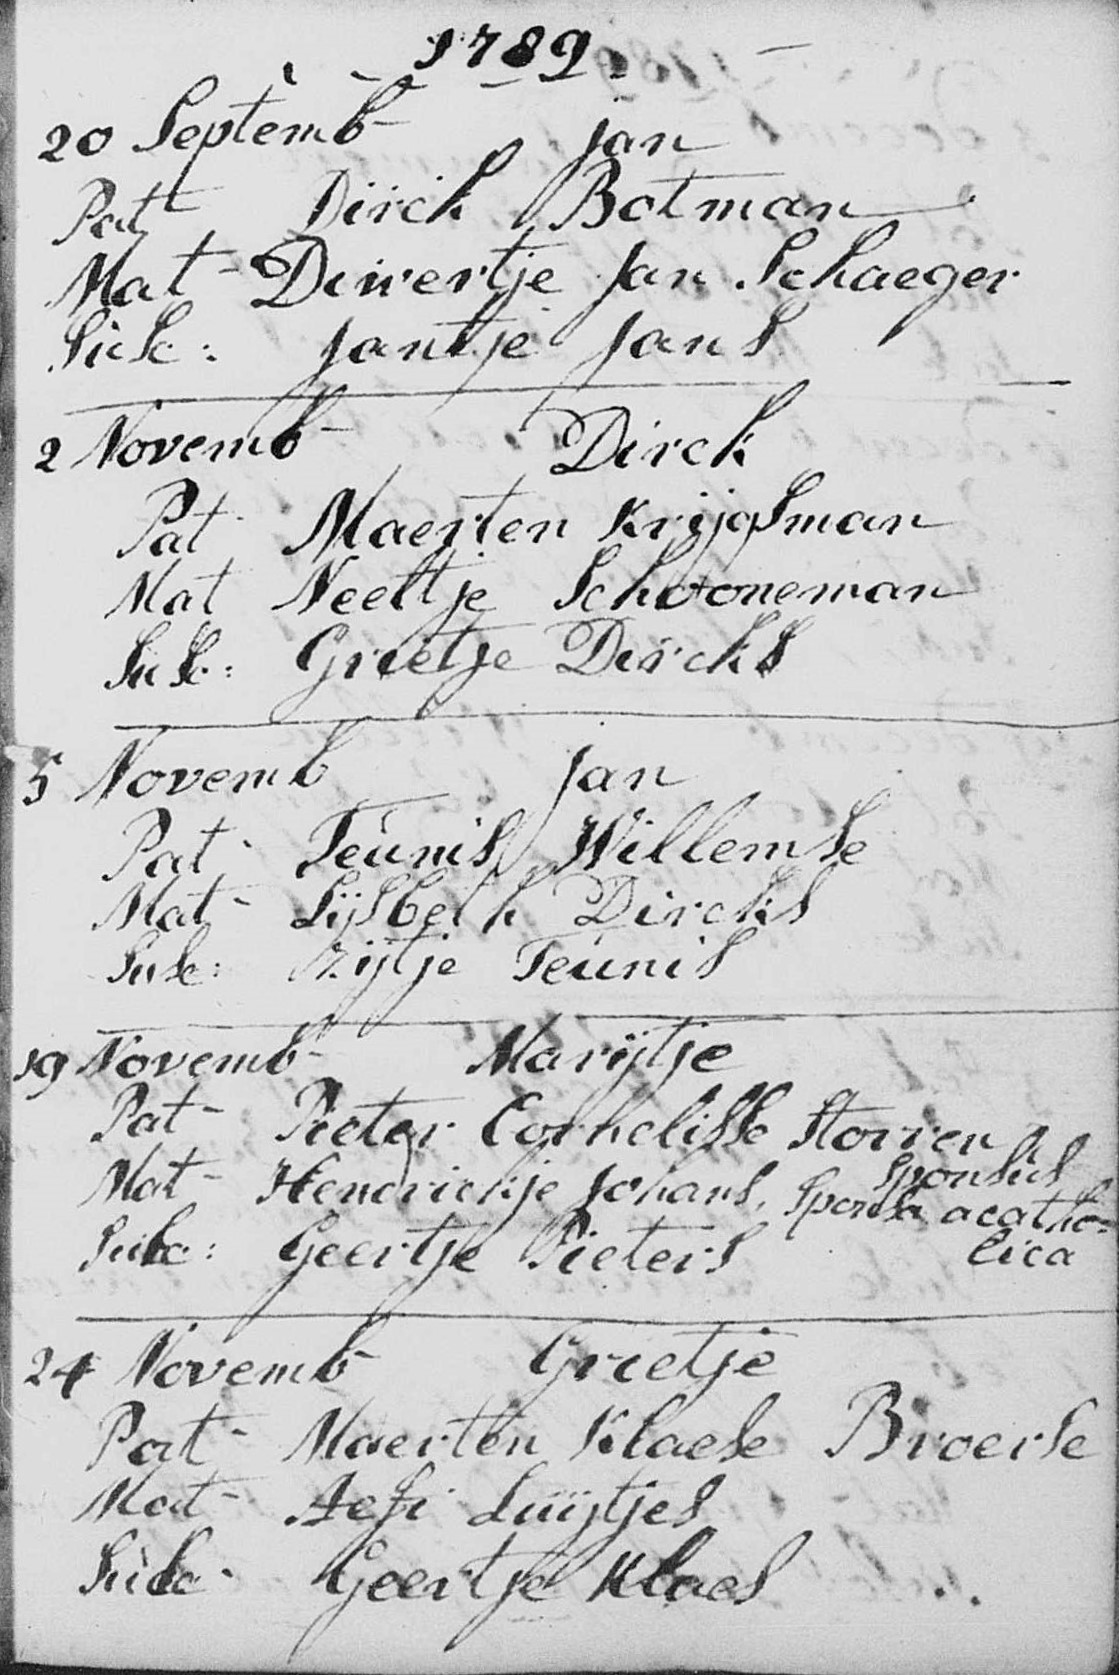 1789.
20 Septemb Jan
Pat Dirck Botman
Mat - Diwertje Jan Schaeger
Susc: Jantje Jans
2 Novemb Dirck
Pat Maerten Krijgsman
Mat Neeltje Schooneman
Susc: Grietje Dircks
5 Novemb Jan
Pat - Teunis Willemse
Mat - Lijsbeth Dircks
Susc: Trijtje Teunis
19 Novemb Marijtje
Pat - Pieter Cornelisse Storren
sponsus
Mat - Hendrickje Johans, sponsa acatho=
lica
Susc: Geertje Pieters
24 Novemb Grietje
Pat - Maerten Klaese Broerse
Mat - Aefi Luijtjes
Susc - Geertje Klaes